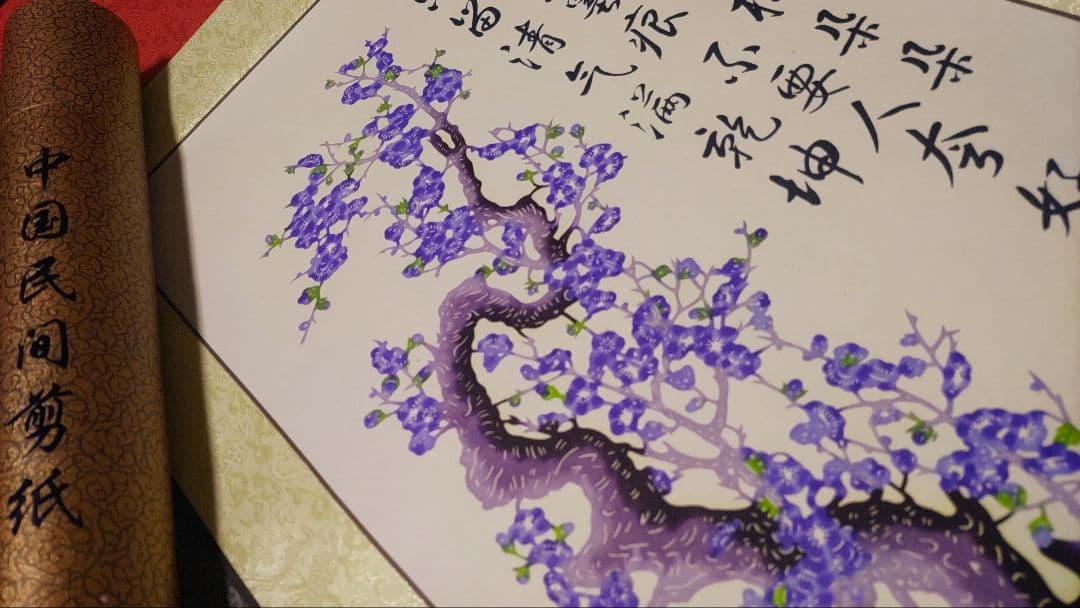 中国民间剪纸
朵朵
痕不要人夸好
留清气满乾坤